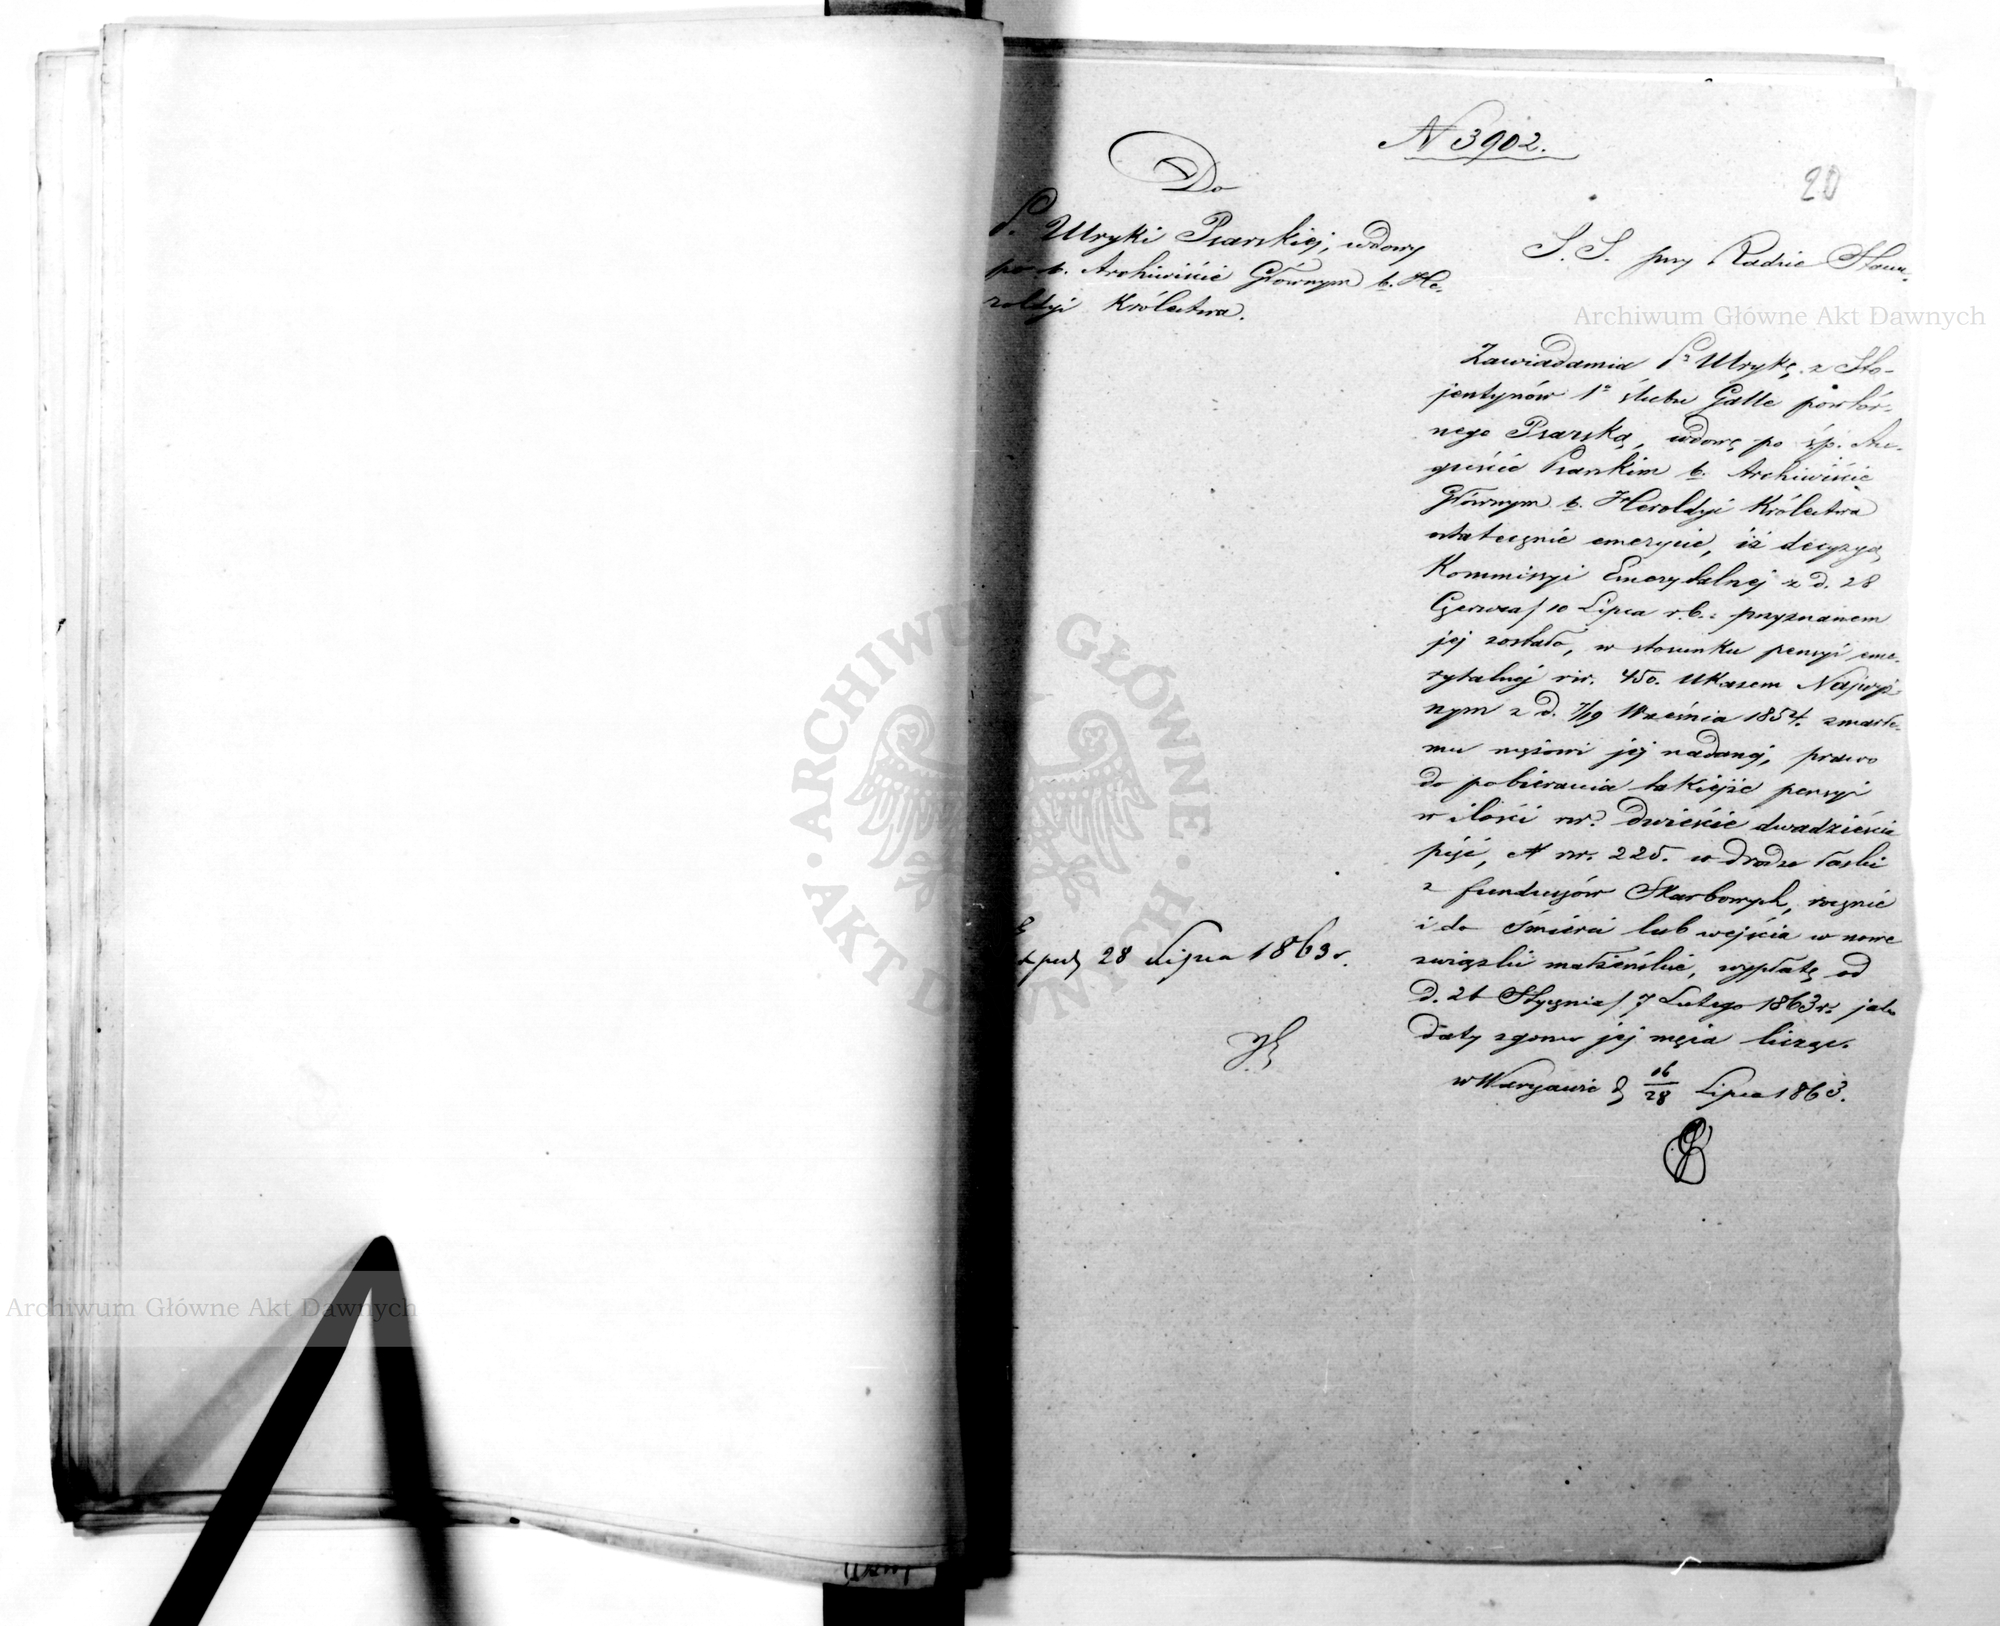 N 3902.
20
Do
P. Ulryki Psarskiej, wdowy
po b. Archiwiście Głównym b. He-
roldyi Królestwa.
S. S. przy Radzie Stanu.
Zawiadamia Pą Ulrykę z Sto-
jentynów 1º ślubu Galle powtór-
nego Psarską, wdowę po śp. Au-
guście Psarskim b. Archiwiście
Głównym b. Heroldyi Królestwa
ostatecznie emerycie, iż decyzyą
Kommissyi Emerytalnej z d. 28
Czerwca/10 Lipca r.b. przyznanem
jej zostało, w stosunku pensyi eme-
rytalnej rsr. 450. Ukazem Najwyż-
nym z d. 7/19 Września 1854. zmarłe-
mu mężowi jej nadanej, prawo
do pobierania takiejże pensyi
w ilości rsr. dwieście dwadzieścia
pięć, N rsr. 225. w drodze łaski
z funduszów Skarbowych, rocznie
i do śmierci lub wejścia w nowe
związki małżeńskie, wypłatę od
d. 26 Stycznia/7 Lutego 1863 r. jako
daty zgonu jej męża licząc.
w Warszawie d. 16/28 Lipca 1863.
Exped. 28 Lipca 1863 r.
Archiwum Główne Akt Dawnych
ARCHIWUM GŁÓWNE AKT DAWNYCH
Archiwum Główne Akt Dawnych